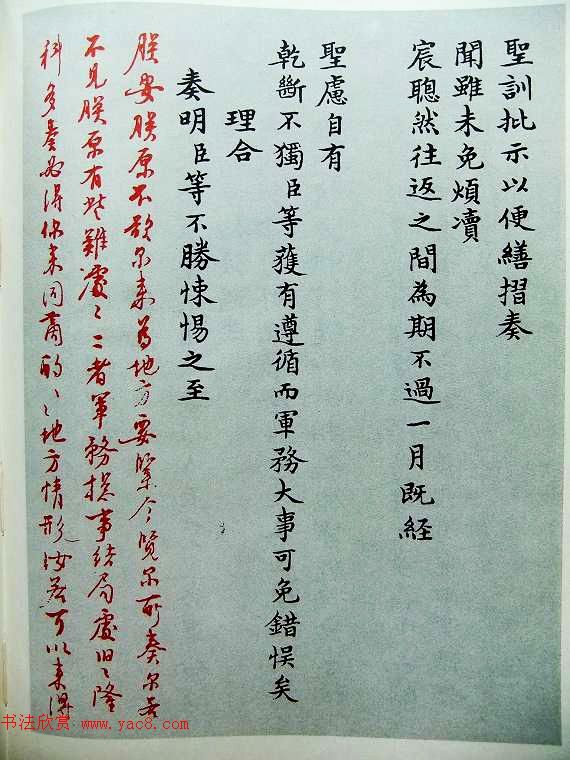 聖訓批示以便繕摺奏
聞雖未免煩瀆
宸聰然往返之間為期不過一月既経
聖慮自有
乾斷不獨臣等獲有遵循而軍務大事可免錯悞矣
理合
奏明臣等不勝悚惕之至
朕安朕原不欲尔来為地方要緊今覽尔所奏尔若
不見朕原有些難處〻二者軍務摠事結局處旧〻隆
科多奏必得你来同商酌〻〻地方情形汝若可以来得
书法欣赏 www.yac8.com